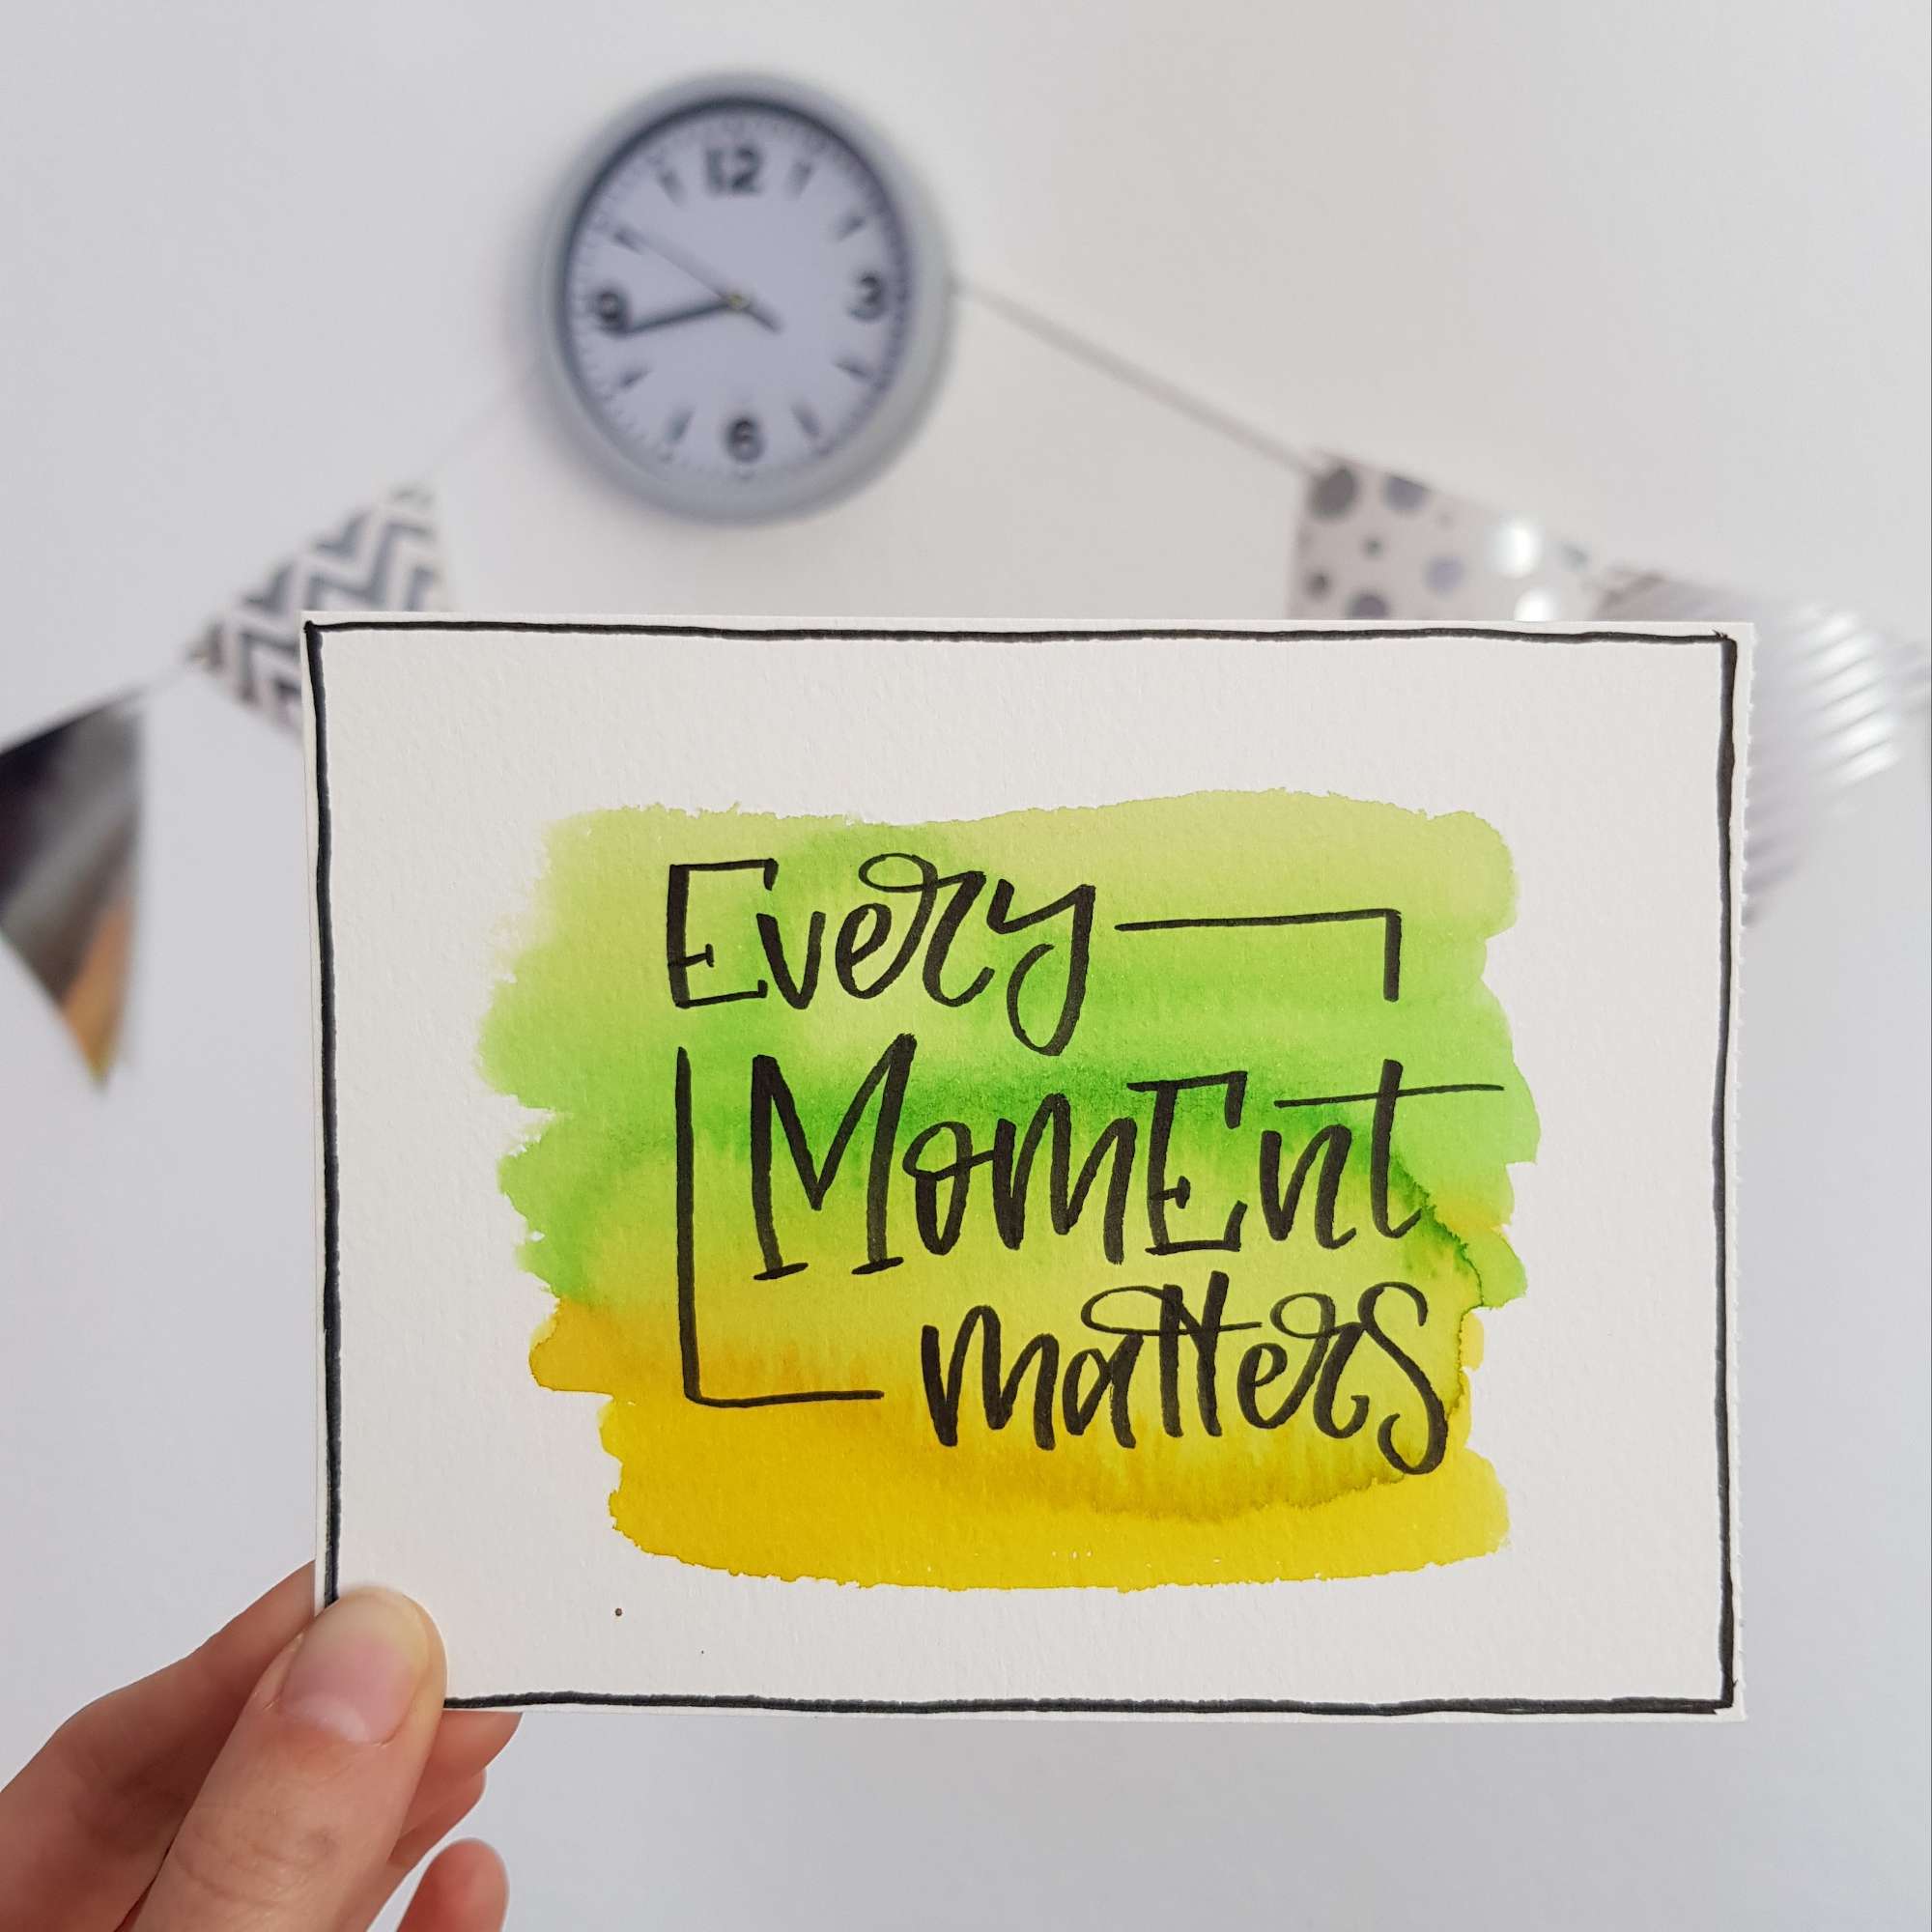 12
3
9
6
Every
MomEnt
matters